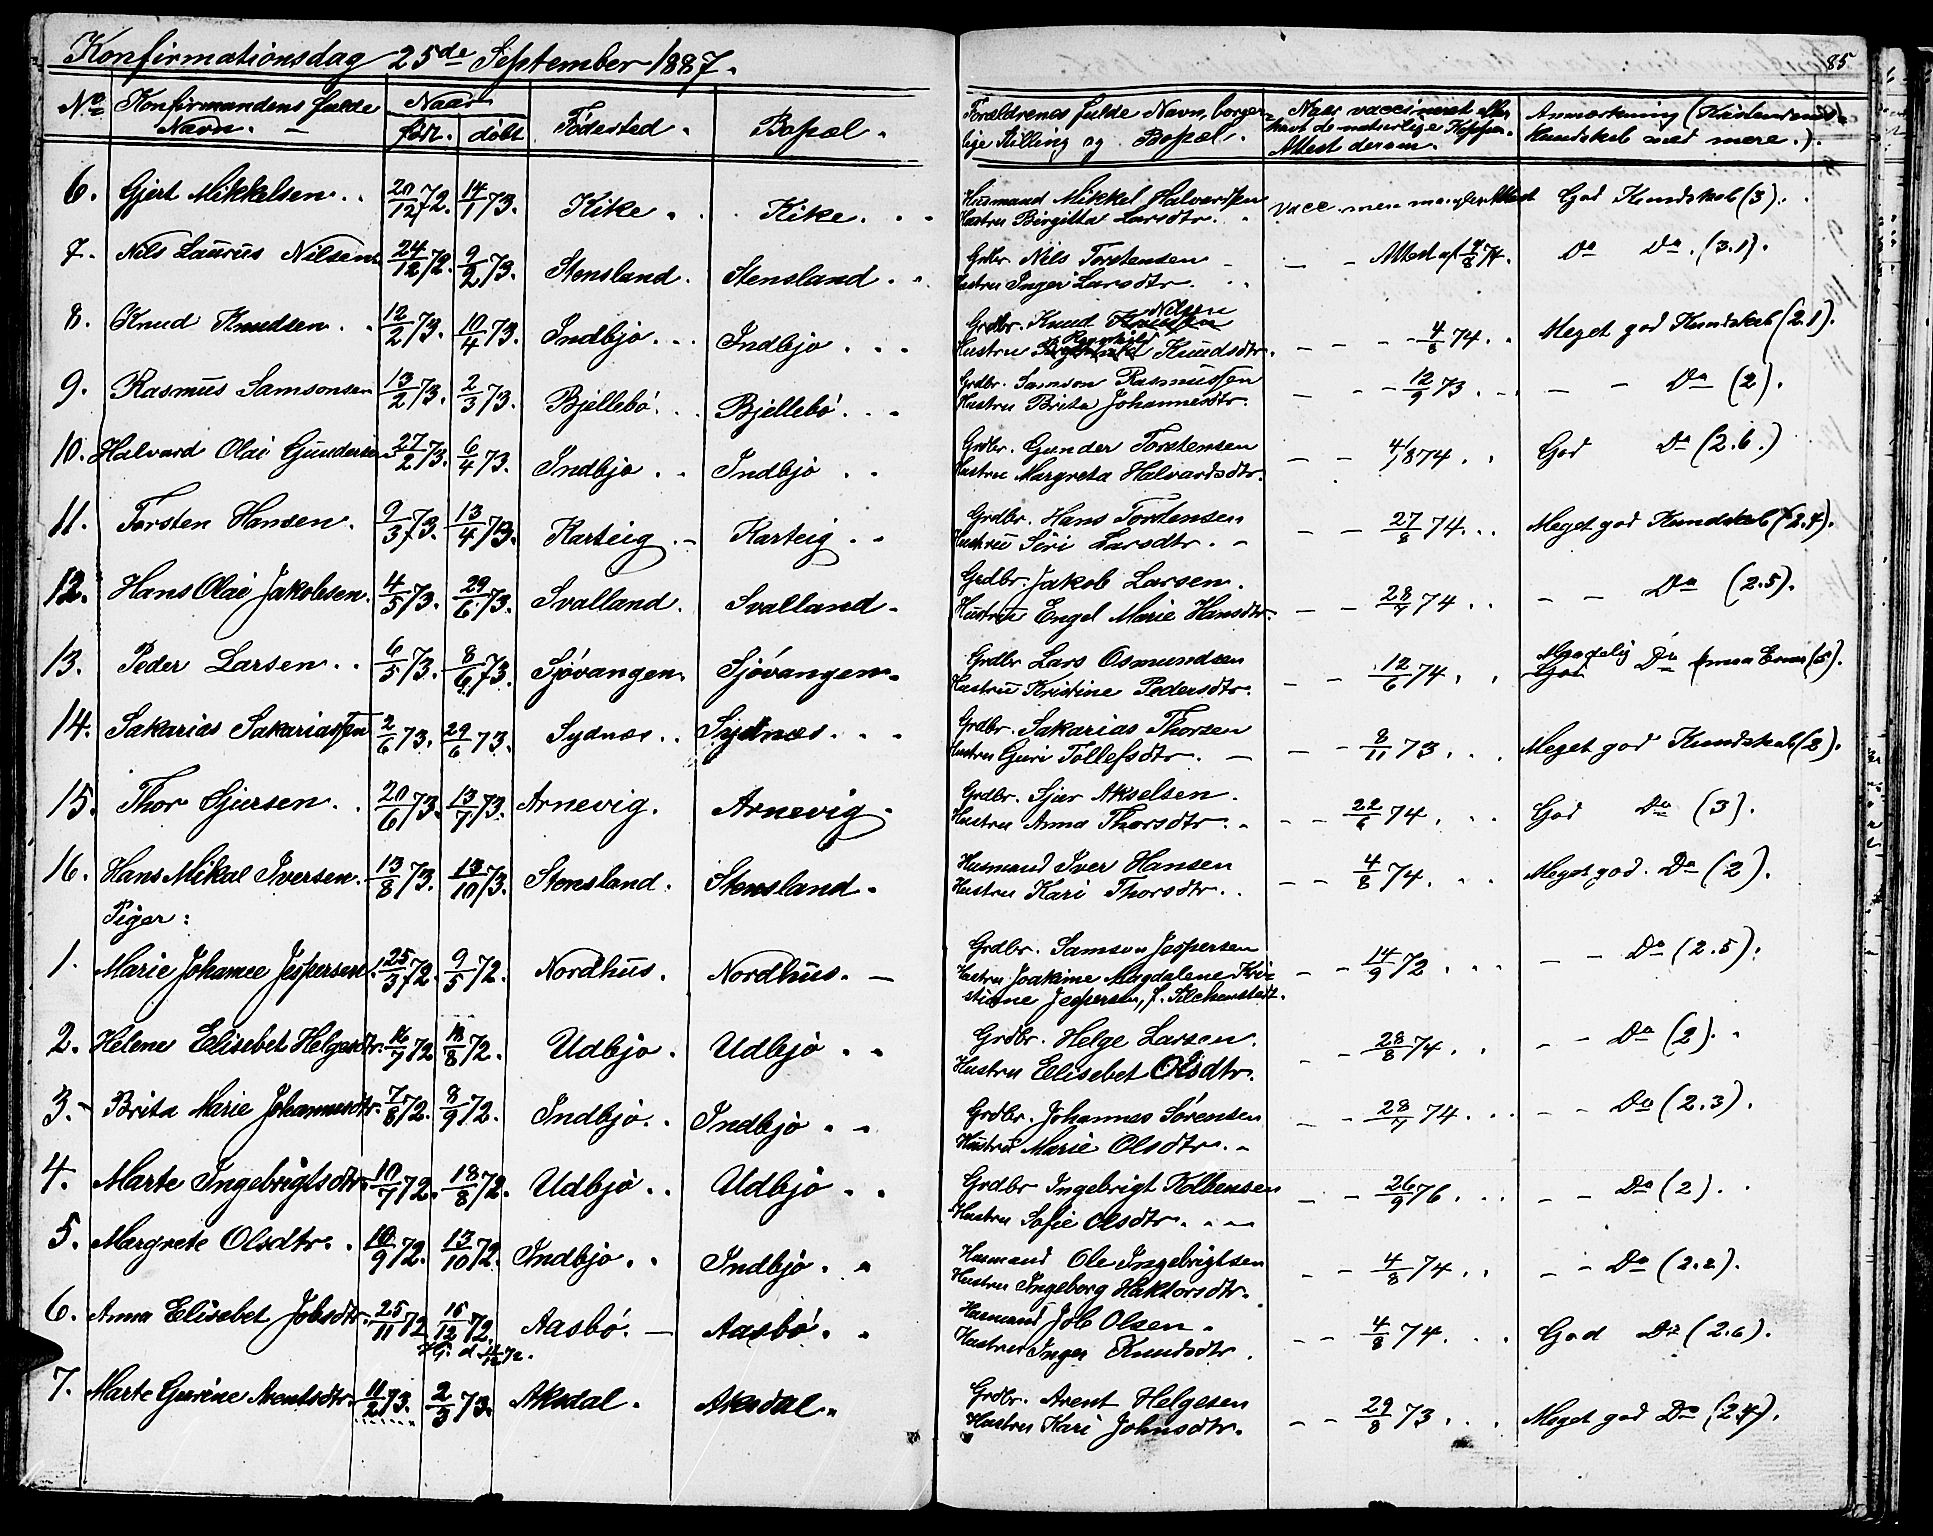 Konfirmationsdag 25de September 1887.
85
No Konfirmandens fulde Navn. Naar født. døbt Fødested. Bopæl. Forældrenes fulde Navn, borgerlige Stilling og Bopæl. Naar vaccineret eller havt de naturlige Kopper. Attest derom. Anmærkning (Kristendomskundskab med mere.).
6. Gjert Mikkelsen. 20/12 72. 14/1 73. Kike. Kike. Husmand Mikkel Halvardsen Vacc. men mangler Attest God Kundskab (3).
Hustru Birgitta Larsdtr.
7. Nils Laurus Nilsen 24/12 72. 9/2 73. Stensland. Stensland. Grdbr. Nils Torstensen - - Attest af 4/8 74. Do Do. (3.1).
Hustru Inger Larsdtr.
8. Knud Knudsen. 12/2 73. 10/4 73. Indbjo. Indbjo. Grdbr. Knud Nilsen - - - 4/8 74. Meget god Kundskab (2.1).
Hustru Knudsdtr.
9. Rasmus Samsonsen 13/2 73. 2/3 73. Bjellebø. Bjellebø. Grdbr. Samson Rasmussen - - - 12/9 73. - - Do (2).
Hustru Brita Johannesdtr.
10. Halvard Olai Gundersen 27/2 73. 6/4 73. Indbjo. Indbjo. Grdbr. Gunder Torstensen - - 4/1 874. God Do (2.6.)
Hustru Margreta Halvardsdtr.
11. Torsten Hansen. 9/3 73. 13/4 73. Karteig. Karteig. Grdbr. Hans Torstensen - - 27/8 74. Meget god Kundskab (2.4).
Hustru Siri Larsdtr.
12. Hans Olai Jakobsen. 4/5 73. 29/6 73. Svalland. Svalland. Grdbr. Jakob Larsen. - - 28/7 74. - - Do (2.5).
Hustru Engel Marie Hansdtr.
13. Peder Larsen. 6/5 73. 8/6 73. Sjøvangen. Sjøvangen. Grdbr Lars Osmundsen - - 12/6 74. Maadelig God Do
Hustru Kristine Pedersdtr.
14. Sakarias Sakariassen 2/6 73. 29/6 73. Sydnæs. Sydnæs. Grdbr. Sakarias Thorsen - - 8/11 73. Meget god Kundskab (2).
Hustru Guri Tollefsdtr.
15. Thor Sjursen. 20/6 73. 13/7 73. Arnevig. Arnevig. Grdbr. Sjur Akselsen. - - 22/6 74. God Do (3).
Hustru Anna Thorsdtr.
16. Hans Mikal Iversen. 13/8 73. 13/10 73. Stensland. Stensland. Husmand Iver Hansen - - 4/8 74. Meget god. Do (2).
Hustru Kari Thorsdtr.
Piger:
1. Marie Johanne Jespersen. 25/3 72. 9/5 72. Nordhus. Nordhus. Grdbr. Samson Jespersen - - 14/9 72. - - Do (2.5).
Hustru Joakime Magdalene Kristiane Jespersen, f.
2. Helene Elisebet Helgesdtr. 16/7 72. 18/8 72. Udbjo. Udbjo. Grdbr. Helge Larsen. - - 28/8 74. - - Do (2).
Hustru Elisebet Olsdtr.
3. Brita Marie Johannesdtr. 7/8 72. 8/9 72. Indbjo. Indbjo. Grdbr. Johannes Sørensen - - 28/7 74. - - Do (2.3).
Hustru Marie Olsdtr.
4. Marte Ingebrigtsdtr. 10/7 72. 18/8 72. Udbjo. Udbjo. Grdbr Ingebrigt Kolbensen - - 26/9 76. - - Do (2).
Hustru Sofie Olsdtr.
5. Margrete Olsdtr. 10/9 72. 13/10 72. Indbjo. Indbjo. Husmand Ole Ingebrigtsen - - 4/8 74. - - Do (2.2).
Hustru Ingeborg Haktorsdtr.
6. Anna Elisebet Jobsdtr. 25/11 72. 15/12 72. Aasbø. Aasbø. Husmand Job Olsen. - - 4/8 74. God Do (2.6).
Hustru Inger Knudsdtr.
7. Marte Gurine Arentsdtr. 11/2 73. 2/3 73. Aksdal. Aksdal. Grdbr. Arent Helgesen - - 29/8 73. Meget god Do (2.4).
Hustru Kari Johnsdtr.